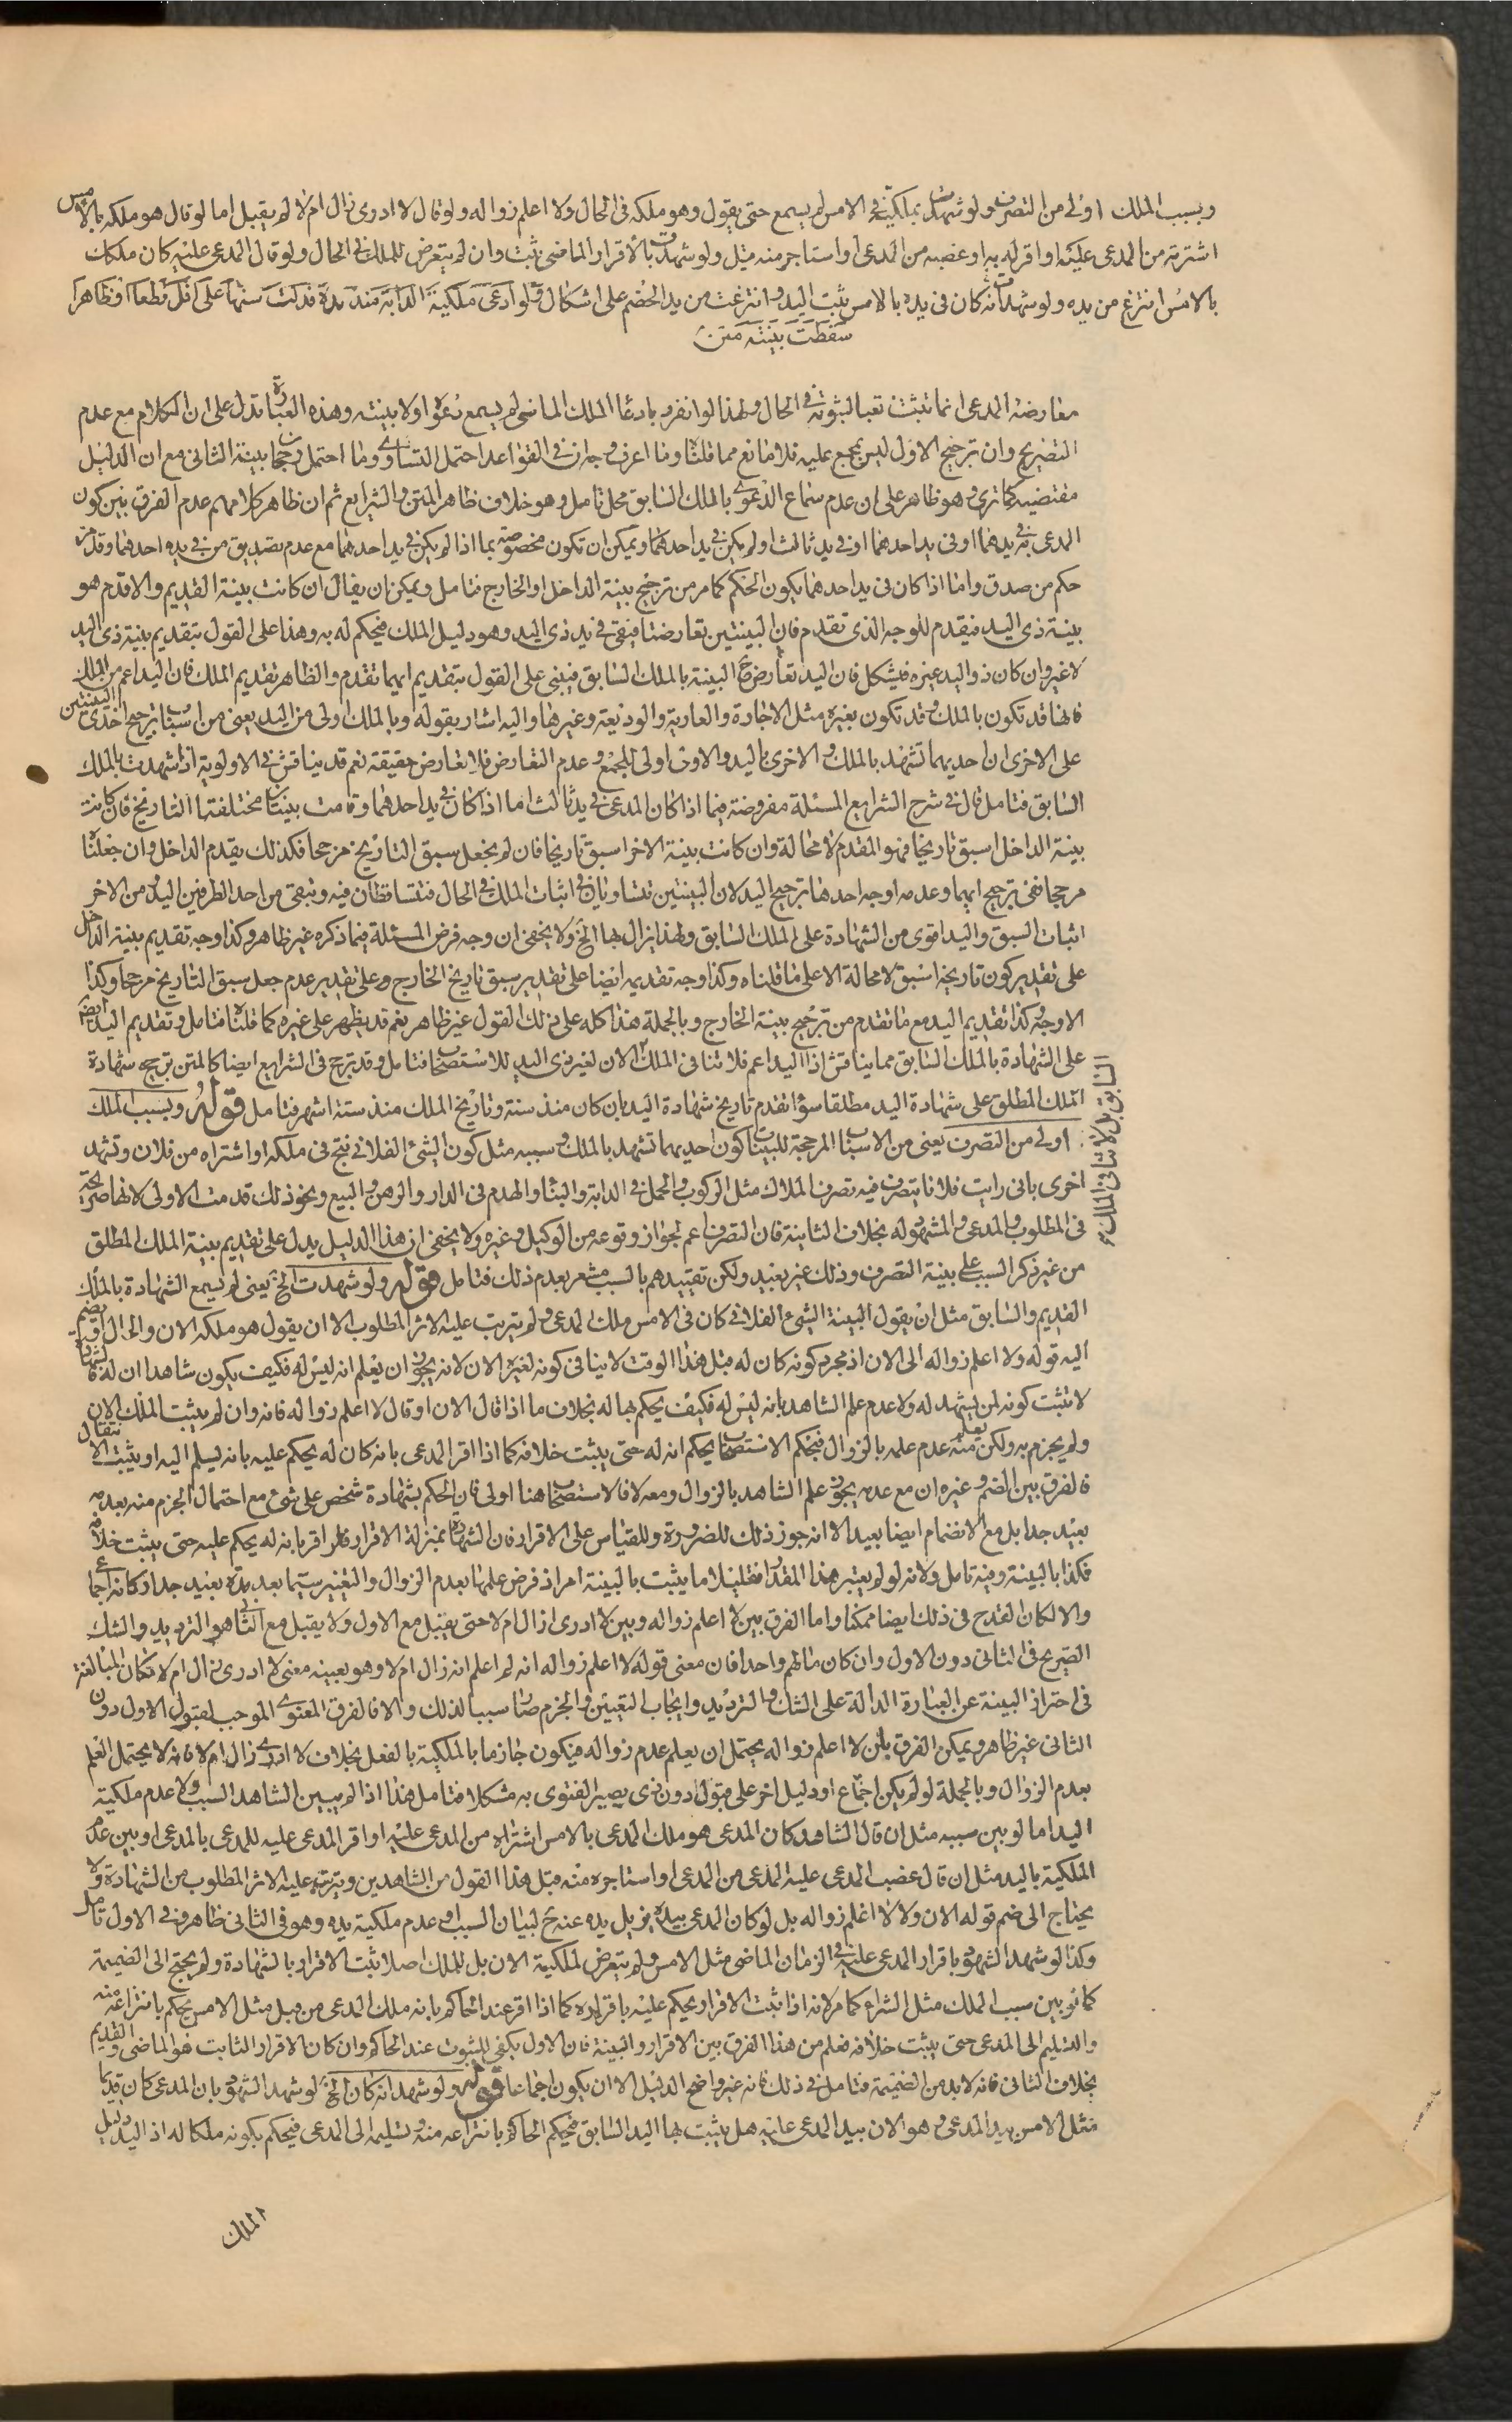 وبسبب الملك اولى من التصرف ولو شهدت بملكيته في الامس لم يسمع حتى يقول وهو ملكه في الحال ولا اعلم زواله ولو قال لا ادرى زال ام لا لم يقبل اما لو قال هو ملكه بالامس
اشتريته من المدعى عليه او اقر له به او غصبه من المدعى او استاجر منه قبل ولو شهدت بالاقرار الماضى ثبت وان لم يتعرض للملك في الحال ولو قال المدعى عليه كان ملكك
بالامس انتزع من يده ولو شهدت انه كان فى يده بالامس ثبت اليد وانتزعت من يد الخصم على اشكال فلو ادعى ملكية الدابة منذ مدة فدلت سنها على اقل قطعا او ظاهرا
سقطت بينته متن
معارضة المدعى انما تثبت تبعا لثبوته في الحال ولهذا لو انفرد بادعا الملك الماضى لم يسمع دعواه ولا بينته وهذه العبارة تدل على ان الكلام مع عدم
التصريح وان ترجيح الاول ليس بمجمع عليه فلا مانع مما قلنا وما اعرف وجهان في القواعد احتمل التساوى وما احتمل رجحان بينة الثانى مع ان الدليل
مقتضيه كما ترى وهو ظاهر على ان عدم سماع الدعوى بالملك السابق محل تامل وهو خلاف ظاهر المتن والشرايع ثم ان ظاهر كلامهم عدم الفرق بين كون
المدعى في يدهما او فى يد احدهما او فى يد ثالث او لم يكن في يد احدهما ويمكن ان تكون مخصوصة بما اذا لم يكن في يد احدهما مع عدم تصديق من في يده احدهما وقد مر
حكم من صدق واما اذا كان فى يد احدهما يكون الحكم كما مر من ترجيح بينة الداخل او الخارج فتامل ويمكن ان يقال ان كانت بينة القديم والاقدم هو
بينة ذى اليد فيقدم للوجه الذى تقدم فان البينتين تعارضتا فيبقى في يد ذى اليد وهو دليل الملك فيحكم له به وهذا على القول بتقديم بينة ذى اليد
لا غير وان كان ذو اليد غيره فيشكل فان اليد تعارض ح البينة بالملك السابق فيبنى على القول بتقديم ايهما تقدم والظاهر تقديم الملك فان اليد اعم من الملك
فانها قد تكون بالملك وقد تكون بغيره مثل الاجارة والعارية والوديعة وغيرها واليه اشار بقوله وبالملك اولى من اليد يعنى من اسباب ترجيح احدى البينتين
على الاخرى ان احديهما تشهد بالملك والاخرى باليد والاولى اولى للجمع وعدم التعارض فلا تعارض حقيقة نعم قد يناقش في الاولوية اذا شهدت بالملك
السابق فتامل قال في شرح الشرايع المسئلة مفروضة فيما اذا كان المدعى في يد ثالث اما اذا كان في يد احدهما وقامت بينتان مختلفتا التاريخ فان كانت
بينة الداخل اسبق تاريخا فهو المقدم لا محالة وان كانت بينة الاخر اسبق تاريخا فان لم يجعل سبق التاريخ مرجحا فكذلك يقدم الداخل وان جعلنا
مرجحا ففى ترجيح ايهما وعدمه اوجه احدها ترجيح اليد لان البينتين تتساويان في اثبات الملك في الحال فتتساقطان فيه وتبقى من احد الطرفين اليد ومن الاخر
اثبات السبق واليد اقوى من الشهادة على الملك السابق ولهذا يزال بها الخ ولا يخفى ان وجه فرض المسئلة فيما ذكره غير ظاهر وكذا وجه تقديم بينة الداخل
على تقدير كون تاريخه اسبق لا محالة الا على ما قلناه وكذا وجه تقديمه ايضا على تقدير سبق تاريخ الخارج وعلى تقدير عدم جعل سبق التاريخ مرجحا وكذا
الاوجه كذا تقديم اليد مع ما تقدم من ترجيح بينة الخارج وبالجملة هذا كله على ذلك القول غير ظاهر نعم قد يظهر على غيره كما قلنا فتامل وتقديم اليد ايضا
على الشهادة بالملك السابق مما يناقش اذ اليد اعم فلا تنافى الملك الان لغير ذى اليد للاستصحاب فتامل وقد ترجح فى الشرايع ايضا كالمتن ترجيح شهادة
السابق بل لا تنافى الملك
الملك المطلق على شهادة اليد مطلقا سواء تقدم تاريخ شهادة اليد بان كان منذ سنة وتاريخ الملك منذ ستة اشهر فتامل قوله وبسبب الملك
اولى من التصرف يعنى من الاسباب المرجحة للبينات كون احديهما تشهد بالملك وسببه مثل كون الشئ الفلانى نتج فى ملكه او اشتراه من فلان وتشهد
اخرى بانى رايت فلانا يتصرف فيه تصرف الملاك مثل الركوب والحمل في الدابة والبناء والهدم فى الدار والرهن والبيع ونحو ذلك قدمت الاولى لانها صريحة
فى المطلوب والمدعى والمشهود له بخلاف الثانية فان التصرف اعم لجواز وقوعه من الوكيل وغيره ولا يخفى ان هذا الدليل يدل على تقديم بينة الملك المطلق
من غير ذكر السبب على بينة التصرف وذلك غير بعيد ولكن تقييدهم بالسبب مشعر بعدم ذلك فتامل قوله ولو شهدت الخ يعنى لم يسمع الشهادة بالملك
القديم والسابق مثل ان يقول البينة الشئ الفلانى كان فى الامس ملك المدعى ولم يترتب عليه الاثر المطلوب الا ان يقول هو ملكه الان والحال او يضم
اليه قوله ولا اعلم زواله الى الان اذ مجرد كونه كان له قبل هذا الوقت لا ينافى كونه لغيره الان لانه يجوز ان يعلم انه ليس له فكيف يكون شاهدا ان له
لا تثبت كونه لمن يشهد له ولا عدم علم الشاهد بانه ليس له فكيف يحكم بها له بخلاف ما اذا قال الان او قال لا اعلم زواله فانه وان لم يثبت الملك الان
ولم يجزم به ولكن يعلم منه عدم علمه بالزوال فبحكم الاستصحاب يحكم انه له حتى يثبت خلافه كما اذا اقر المدعى بانه كان له يحكم عليه بانه يسلم اليه او يثبت الانتقال
فالفرق بين الضم وغيره ان مع عدمه يجوز علم الشاهد بالزوال ومعه لا فالاستصحاب هنا اولى فان الحكم بشهادة شخص على شئ مع احتمال الجزم منه بعدمه
بعيد جدا بل مع الانضمام ايضا بعيد الا انه جوز ذلك للضرورة وللقياس على الاقرار فان الشهادة بمنزلة الاقرار فلو اقر بانه له يحكم عليه حتى يثبت خلافه
فكذا بالبينة وفيه تامل ولانه لو لم يعتبر هذا المقدار فقليلا ما يثبت بالبينة امر اذ فرض علمها بعدم الزوال والتغيير سيما بعد مدة بعيد جدا وكانه اجماعى
والا لكان القدح فى ذلك ايضا ممكنا واما الفرق بين لا اعلم زواله وبين لا ادرى ازال ام لا حتى يقبل مع الاول ولا يقبل مع الثانى هو الترديد والشك
الصريح فى الثانى دون الاول وان كان مالهم واحدا فان معنى قوله لا اعلم زواله انه لم اعلم انه زال ام لا وهو بعينه معنى لا ادرى زال ام لا فكان المبالغة
فى احتراز البينة عن العبارة الدالة على الشك والترديد وايجاب التعيين والجزم صار سببا لذلك والا فالفرق المعنوى الموجب لقبول الاول دون
الثانى غير ظاهر ويمكن الفرق بان لا اعلم زواله يحتمل ان يعلم عدم زواله فيكون جازما بالملكية بالفعل بخلاف لا ادرى زال ام لا فانه لا يحتمل العلم
بعدم الزوال وبالجملة لو لم يكن اجماع او دليل اخر على قبول دون ذى يصير الفتوى به مشكلا فتامل هذا اذا لم يبين الشاهد السبب ولا عدم ملكية
اليد اما لو بين سببه مثل ان قال الشاهد كان المدعى هو ملك المدعى بالامس اشتراه من المدعى عليه او اقر المدعى عليه للمدعى بالمدعى او بين عدم
الملكية باليد مثل ان قال غصب المدعى عليه المدعى من المدعى او استاجره منه قبل هذا القول من الشاهدين ويترتب عليه الاثر المطلوب من الشهادة ولا
يحتاج الى ضم قوله الان ولا لا اعلم زواله بل لو كان المدعى بيده يزيل يده عنه ح لبيان السبب او عدم ملكية يده وهو فى الثانى ظاهر وفى الاول تامل
وكذا لو شهد الشهود باقرار المدعى عليه في الزمان الماضى مثل الامس ولم يتعرض لملكية الان بل للملك اصلا ثبت الاقرار بالشهادة ولم يحتج الى الضميمة
كما لو بين سبب الملك مثل الشراء كما مر لانه اذا ثبت الاقرار يحكم عليه باقراره كما اذا اقر عند الحاكم بانه ملك المدعى من قبل مثل الامس يحكم بانتزاعه منه
والتسليم الى المدعى حتى يثبت خلافه فعلم من هذا الفرق بين الاقرار والبينة فان الاول يكفى للثبوت عند الحاكم وان كان الاقرار الثابت هو الماضى والقديم
بخلاف الثانى فانه لا بد من الضميمة فتامل في ذلك فانه غير واضح الدليل الا ان يكون اجماعا قوله ولو شهد انه كان الخ لو شهد الشهود بان المدعى كان قديما
مثل الامس بيد المدعى وهو الان بيد المدعى عليه هل يثبت بها اليد السابق فيحكم الحاكم بانتزاعه منه وتسليمه الى المدعى فيحكم بكونه ملكا له اذ اليد دليل
الملك